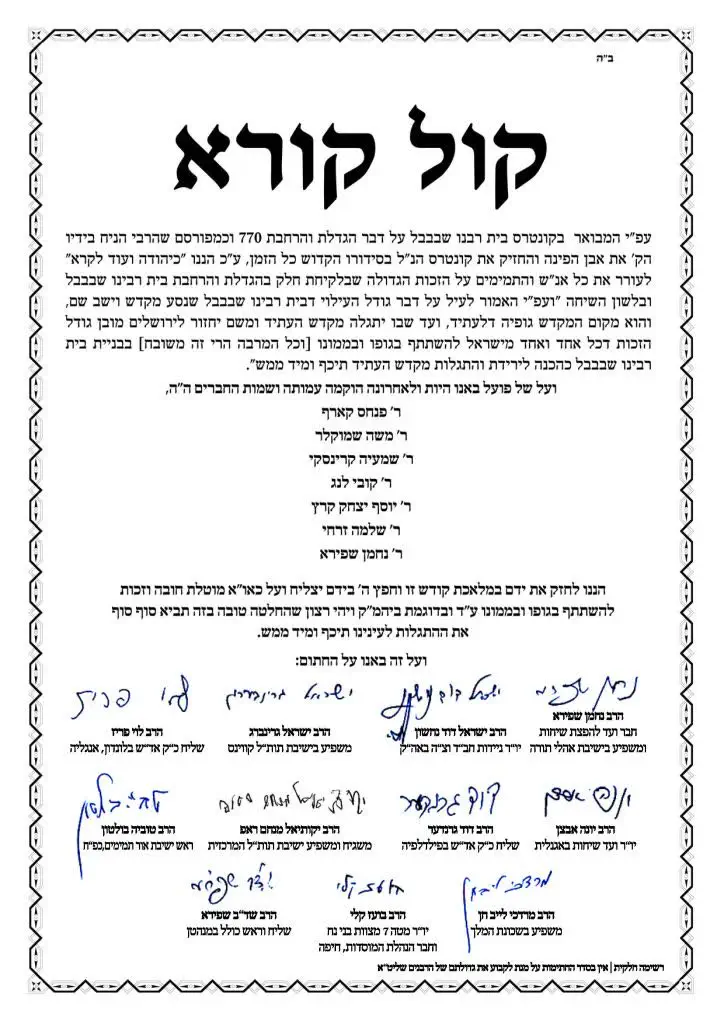 ב"ה
קול קורא
עפ"י המבואר בקונטרס בית רבנו שבבבל על דבר הגדלת והרחבת 770 וכמפורסם שהרבי הניח בידיו
הק' את אבן הפינה והחזיק את קונטרס הנ"ל בסידורו הקדוש כל הזמן, ע"כ הננו "כיהודה ועוד לקרא"
לעורר את כל אנ"ש והתמימים על הזכות הגדולה שבלקיחת חלק בהגדלת והרחבת בית רבינו שבבבל
ובלשון השיחה "ועפ"י האמור לעיל על דבר גודל העילוי דבית רבינו שבבבל שנסע מקדש וישב שם,
והוא מקום המקדש גופיה דלעתיד, ועד שבו יתגלה מקדש העתיד ומשם יחזור לירושלים מובן גודל
הזכות דכל אחד ואחד מישראל להשתתף בגופו ובממונו [וכל המרבה הרי זה משובח] בבניית בית
רבינו שבבבל כהכנה לירידת והתגלות מקדש העתיד תיכף ומיד ממש".
ועל של פועל באנו היות ולאחרונה הוקמה עמותה ושמות החברים ה"ה,
ר' פנחס קארף
ר' משה שמוקלר
ר' שמעיה קרינסקי
ר' קובי לנג
ר' יוסף יצחק קרץ
ר' שלמה זרחי
ר' נחמן שפירא
הננו לחזק את ידם במלאכת קודש זו וחפץ ה' בידם יצליח ועל כאו"א מוטלת חובה וזכות
להשתתף בגופו ובממונו ע"ד ובדוגמת ביהמ"ק ויהי רצון שהחלטה טובה בזה תביא סוף סוף
את ההתגלות לעינינו תיכף ומיד ממש.
ועל זה באנו על החתום:
נחמן שפירא ישראל דוד נחשון ישראל גרינברג לוי פריז
הרב נחמן שפירא הרב ישראל דוד נחשון הרב ישראל גרינברג הרב לוי פריז
חבר ועד להפצת שיחות יו"ר ניידות חב"ד וצ"ה באה"ק משפיע בישיבת תות"ל קווינס שליח כ"ק אד"ש בלונדון, אנגליה
ומשפיע בישיבת אהלי תורה
הרב יונה אבצן הרב דוד גרנדער הרב יקותיאל מנחם ראפ הרב טוביה בולטון
יו"ר ועד שיחות באנגלית שליח כ"ק אד"ש בפילדלפיה משגיח ומשפיע ישיבת תות"ל המרכזית ראש ישיבת אור תמימים,כפ"ח
הרב מרדכי לייב חן הרב בועז קלי הרב שד"ב שפירא
משפיע בשכונת המלך יו"ר מטה 7 מצוות בני נח שליח וראש כולל במנהטן
וחבר הנהלת המוסדות, חיפה
רשימה חלקית | אין בסדר החתימות על מנת לקבוע את גדולתם של הרבנים שליט"א